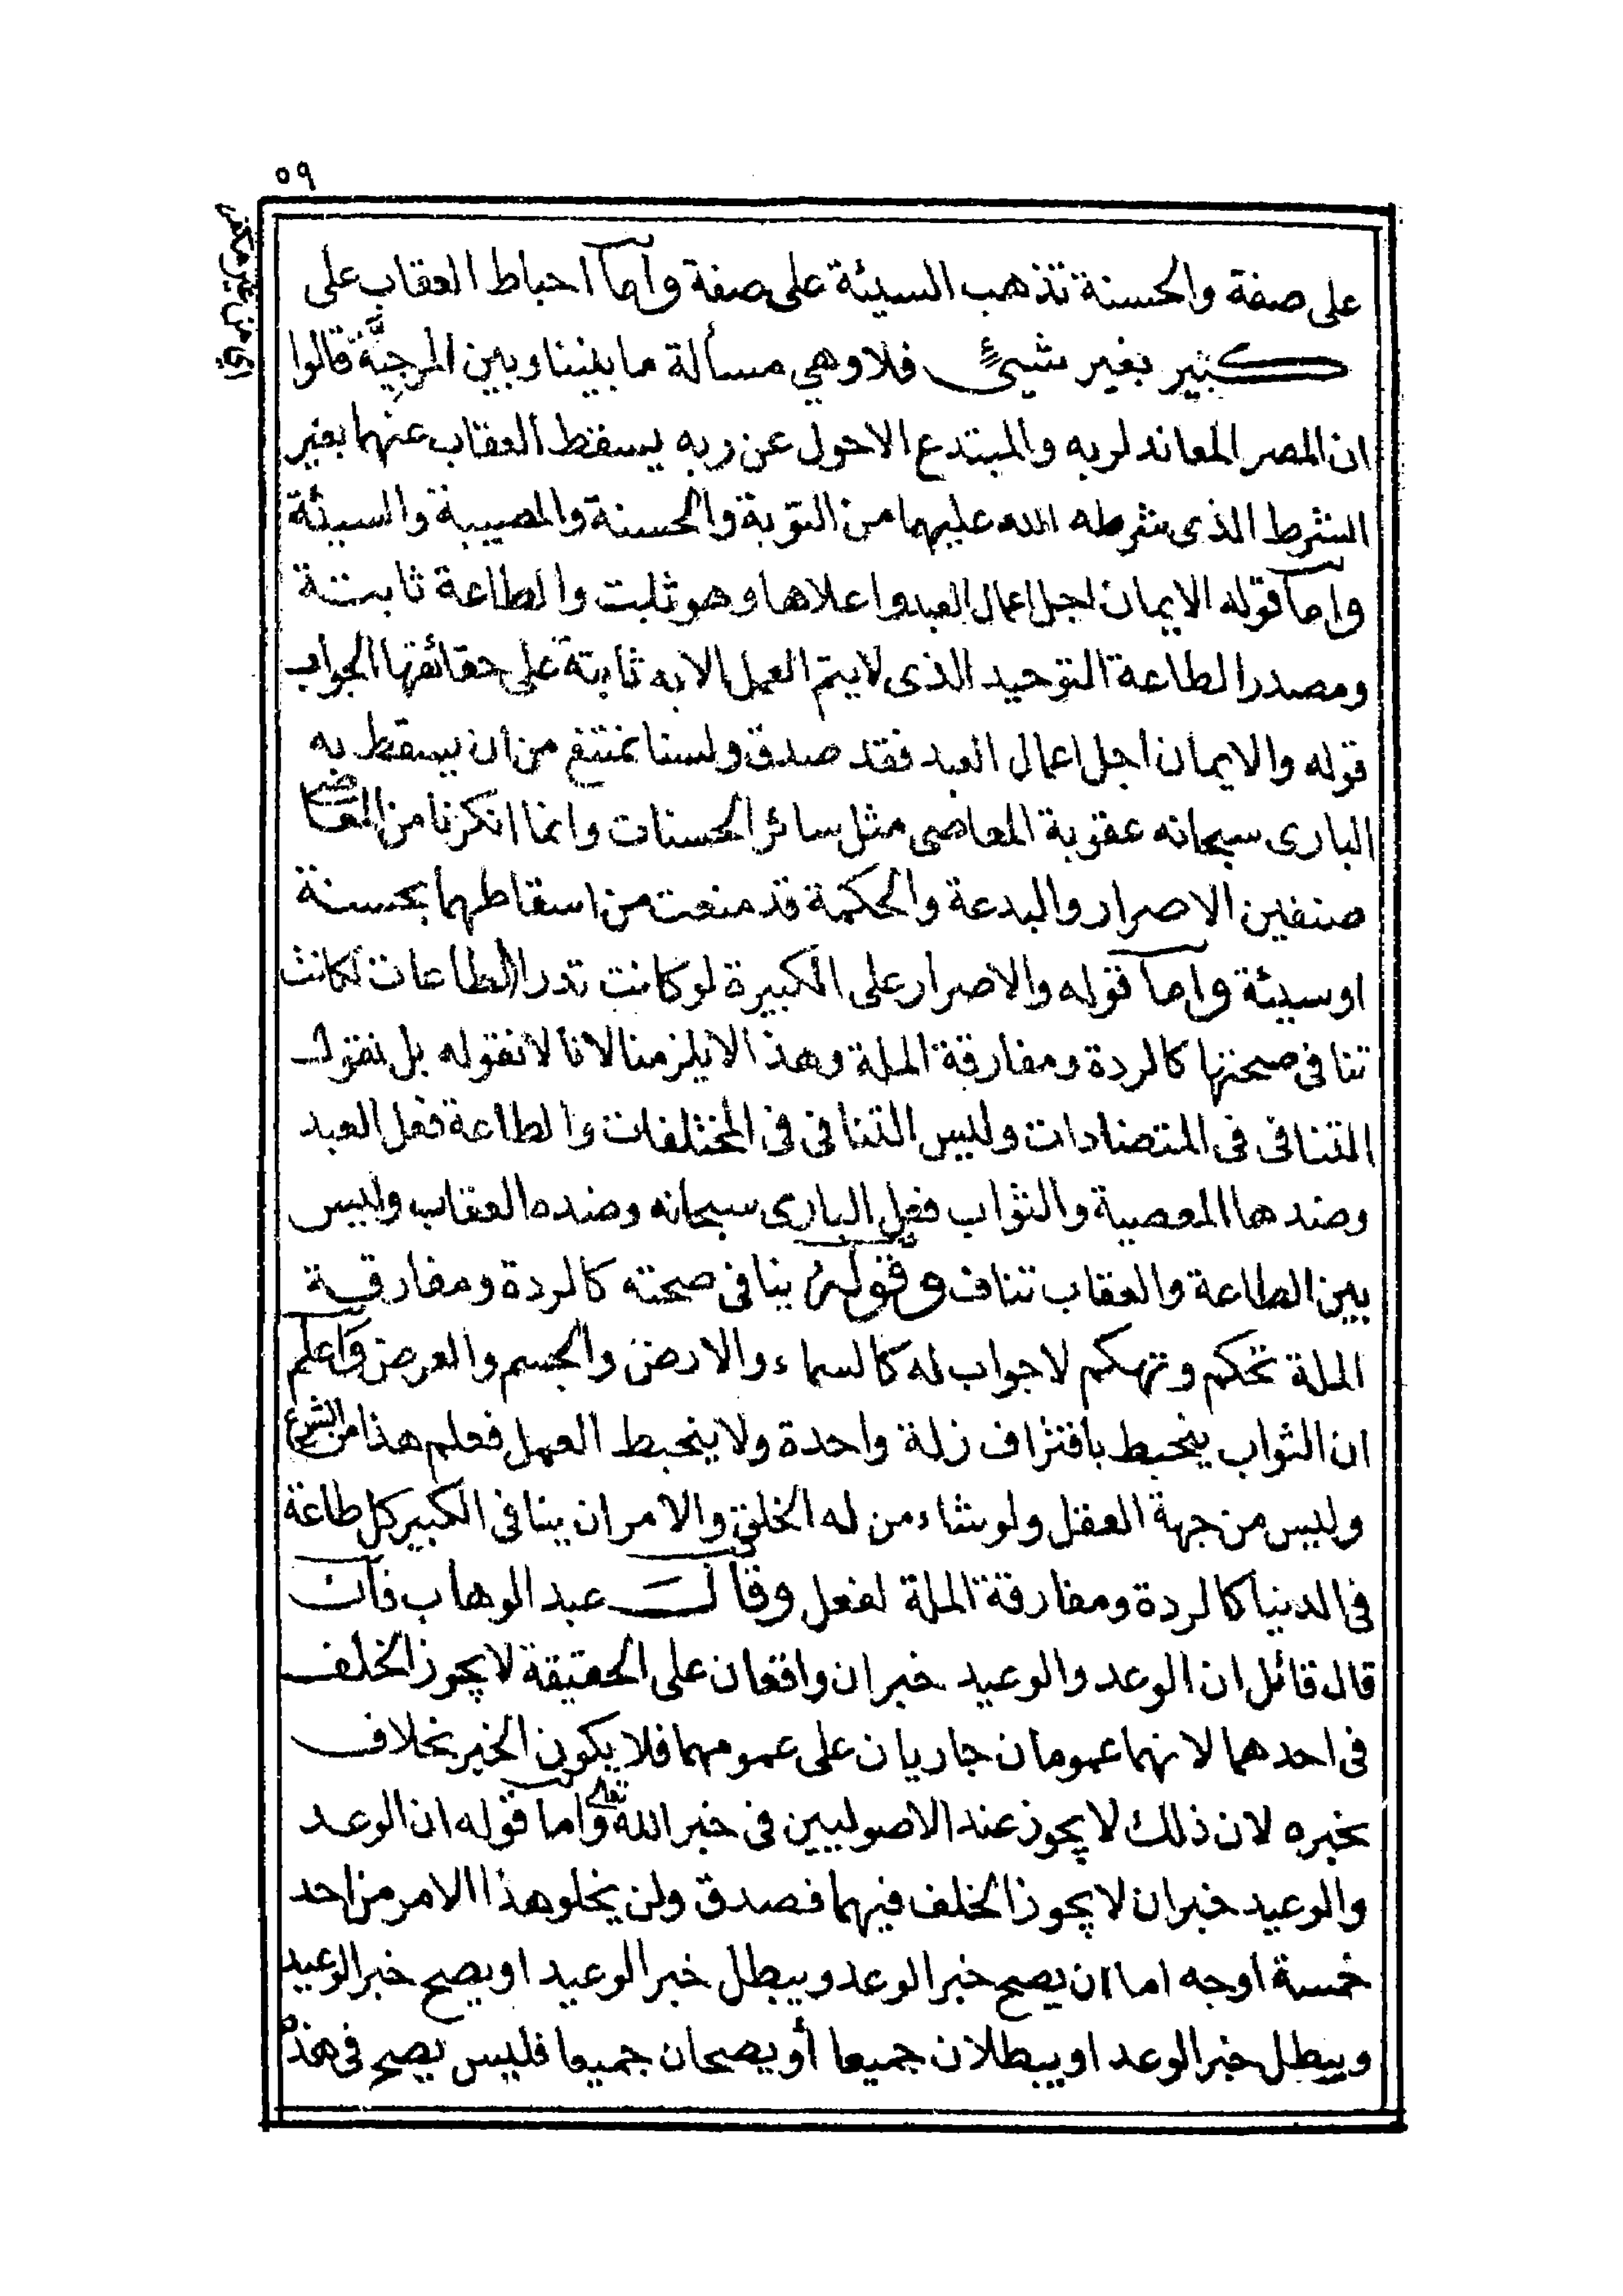 ٥٩
على صفة والحسنة تذهب السيئة على صفة وأما احباط العقاب على
كبير بغير شيئ فلا وهي مسألة ما بيننا وبين المرجيّة قالوا
ان المصر المعاند لربه والمبتدع الاحول عن ربه يسقط العقاب عنهما بغير
الشرط الذى شرطه الله عليهما من التوبة والحسنة والمصيبة والسيئة
وأما قوله الايمان اجل اعمال العبد واعلاها وهو ثابت والطاعة ثابتة
ومصدر الطاعة التوحيد الذى لا يتم العمل الا به ثابتة على حقائقها الجواب
قوله والايمان اجل اعمال العبد فقد صدق ولسنا نمتنع من ان يسقط به
البارى سبحانه عقوبة المعاصى مثل سائر الحسنات وانما انكرنا من المعاصى
صنفين الاصرار والبدعة والحكمة قد منعت من اسقاطهما بحسنة
او سيئة وأما قوله والاصرار على الكبيرة لو كانت تدرا الطاعات لكانت
تنافى صحتها كالردة ومفارقة الملة وهذا لا يلزمنا لانا لا نقوله بل نقول
التنافى فى المتضادات وليس التنافى فى المختلفات والطاعة فعل العبد
وضدها المعصية والثواب فعل البارى سبحانه وضده العقاب وليس
بين الطاعة والعقاب تناف وقوله ينافى صحته كالردة ومفارقة
الملة تحكم وتهكم لا جواب له كالسماء والارض والجسم والعرض وَاعلم
ان الثواب ينحبط باقتراف زلة واحدة ولا ينحبط العمل فعلم هذا من الشرع
وليس من جهة العقل ولو شاء من له الخلق والامر ان ينافى الكبير كل طاعة
فى الدنيا كالردة ومفارقة الملة لفعل وقال عبد الوهاب فان
قال قائل ان الوعد والوعيد خبران واقعان على الحقيقة لا يجوز الخلف
فى احدهما لانهما عمومان جاريان على عمومهما فلا يكون الخبر بخلاف
بخبره لان ذلك لا يجوز عند الاصوليين فى خبر الله تعالى وأما قوله ان الوعد
والوعيد خبران لا يجوز الخلف فيهما فصدق ولن يخلو هذا الامر من احد
خمسة اوجه اما ان يصح خبر الوعد ويبطل خبر الوعيد او يصح خبر الوعيد
ويبطل خبر الوعد او يبطلان جميعا أو يصحان جميعا فليس يصح فى هذه
اى من غير مكفر